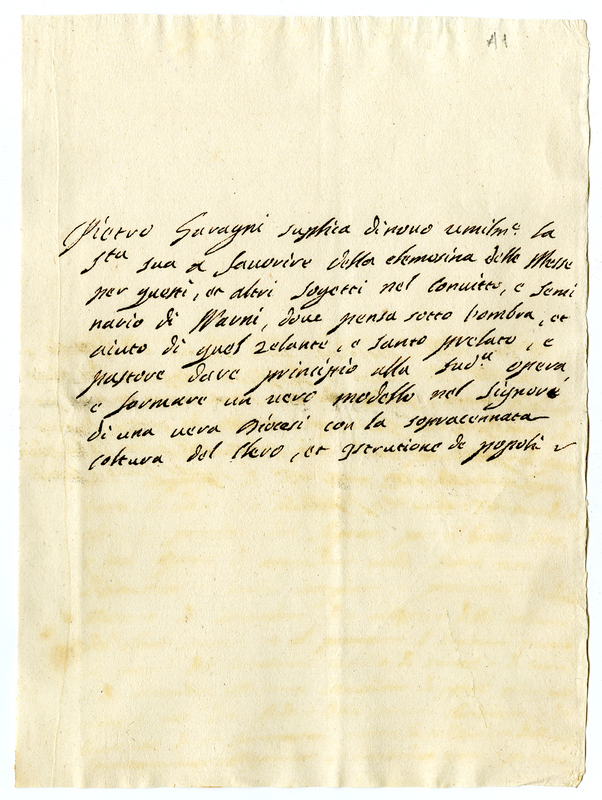 A1
Pietro Savagni suplica di nouo umilm.e la
S.ta sua a fauorire della elemosina delle Messe
per questi, et altri sogetti nel Conuitto, e Semi
nario di Narni, doue pensa sotto l'ombra, et
aiuto di quel zelante, e santo prelato, e
pastore dare principio alla sud.a opera
e formare un uero modello nel Signore
di una uera Diocesi con la sopracennata
coltura del Clero, et istrutione de popoli